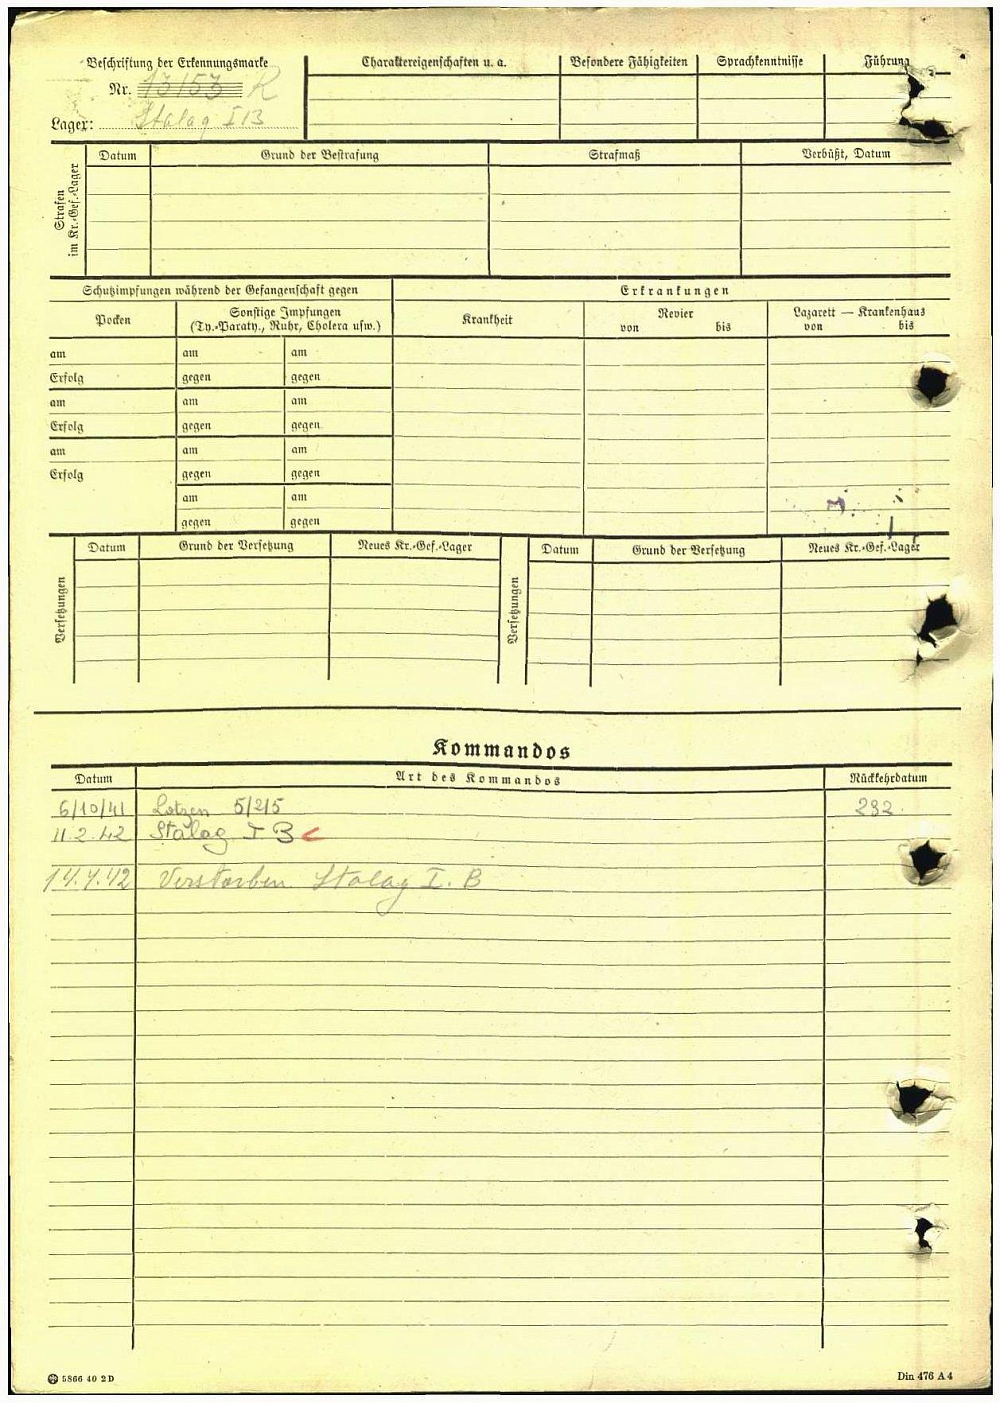 Beschriftung der Erkennungsmarke
Nr. 13153 R
Lager: Stalag I B
Charaktereigenschaften u. a.
Besondere Fähigkeiten
Sprachkenntnisse
Führung
Strafen
im Kr.-Gef.-Lager
Datum
Grund der Bestrafung
Strafmaß
Verbüßt, Datum
Schutzimpfungen während der Gefangenschaft gegen
Erkrankungen
Pocken
Sonstige Impfungen
(Ty.-Paraty., Ruhr, Cholera usw.)
Krankheit
Revier
von bis
Lazarett — Krankenhaus
von bis
am am am
Erfolg gegen gegen
am am am
Erfolg gegen gegen
am am am
Erfolg gegen gegen
am am
gegen gegen
Versetzungen
Datum Grund der Versetzung Neues Kr.-Gef.-Lager
Versetzungen
Datum Grund der Versetzung Neues Kr.-Gef.-Lager
Kommandos
Datum Art des Kommandos Rückkehrdatum
6/10/41 Lotzen 5/215 232.
11.2.42 Stalag I B
14.4.42 Verstorben Stalag I. B
5866 40 2 D
Din 476 A 4